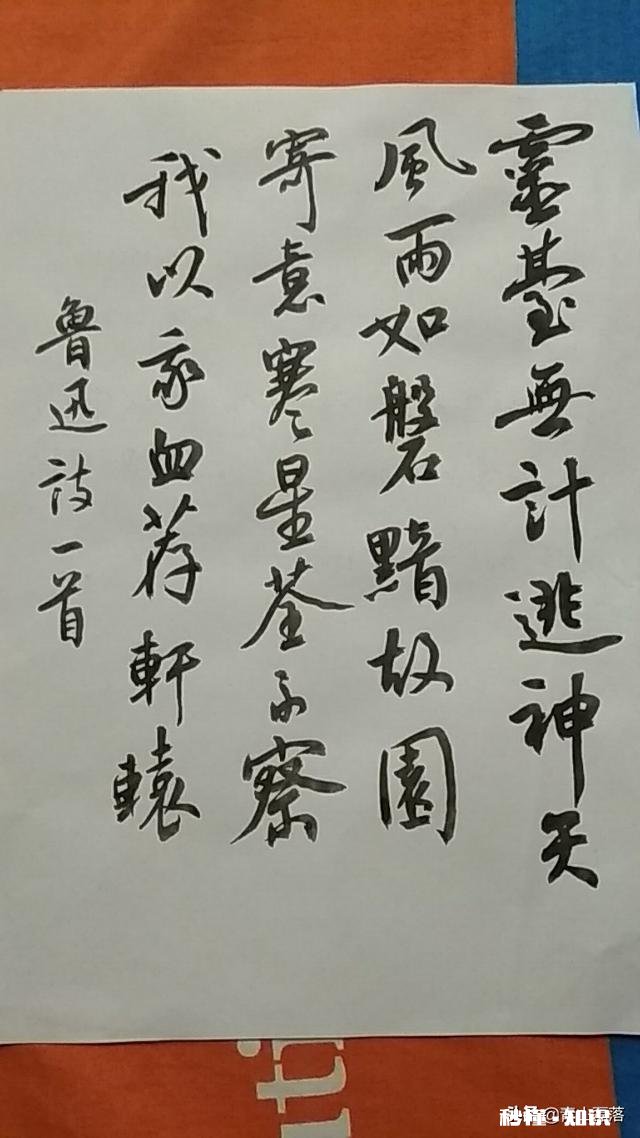 靈臺無計逃神矢
風雨如磐黯故園
寄意寒星荃不察
我以我血荐軒轅
魯迅詩一首
秒懂·知识